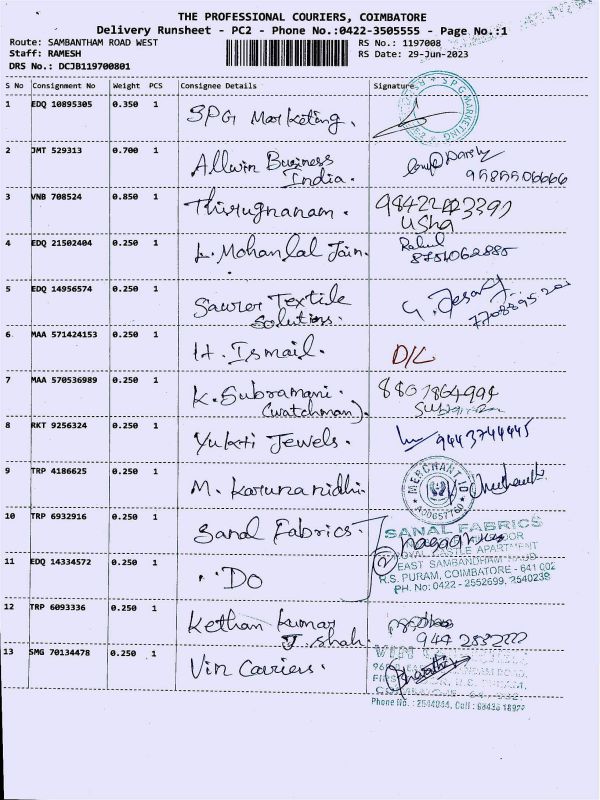 THE PROFESSIONAL COURIERS, COIMBATORE
Delivery Runsheet - PC2 - Phone No.:0422-3505555 - Page No.:1
Route: SAMBANTHAM ROAD WEST
RS No.: 1197008
Staff: RAMESH
RS Date: 29-Jun-2023
DRS No.: DCJB119700801
S No Consignment No Weight PCS Consignee Details Signature
1 EDQ 10895305 0.350 1 SPG Marketing.
SPG MARKETING
2 JMT 529313 0.700 1 Allwin Business
India.
9585506666
3 VNB 708524 0.850 1 Thirugnanam.
Usha
4 EDQ 21502404 0.250 1 L. Mohanlal Jain.
Rahul
8754062885
5 EDQ 14956574 0.250 1 Saurer Textile
Solutions.
6 MAA 571424153 0.250 1 H. Ismail. D/L
7 MAA 570536989 0.250 1 K. Subramani.
(watchman).
8807864994
8 RKT 9256324 0.250 1 Yukti Jewels. 9443744445
9 TRP 4186625 0.250 1 M. Karunanidhi
MERCHANT ID
10 TRP 6932916 0.250 1 Sanal Fabrics.
SANAL FABRICS
CASTLE APARTMENT
11 EDQ 14334572 0.250 1 "Do
2
EAST SAMBANDHAM ROAD
R.S. PURAM, COIMBATORE - 641 002
PH. No: 0422 - 2552699, 2540238
12 TRP 6093336 0.250 1 Kethan Kumar
J. Shah.
13 SMG 70134478 0.250 1 Vin Carriers.
VIN
Phone No. : 2544044, Cell : 98436 18922